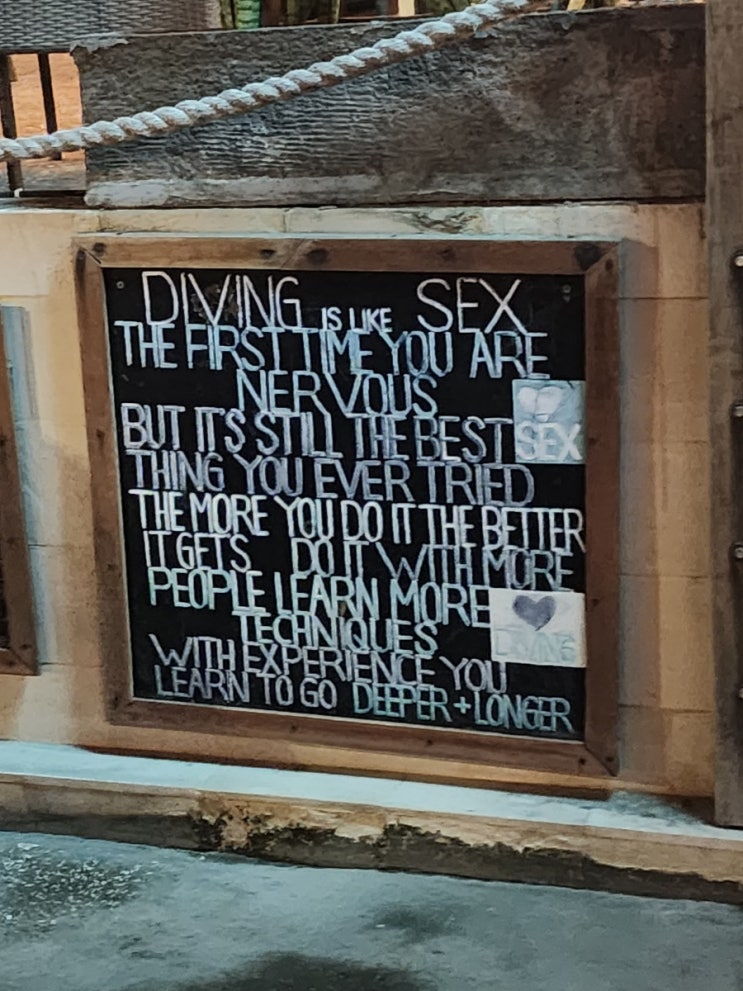 DIVING IS LIKE SEX
THE FIRST TIME YOU ARE
NERVOUS
BUT IT'S STILL THE BEST
SEX
THING YOU EVER TRIED
THE MORE YOU DO IT THE BETTER
IT GETS DO IT WITH MORE
PEOPLE LEARN MORE
TECHNIQUES
DIVING
WITH EXPERIENCE YOU
LEARN TO GO DEEPER + LONGER